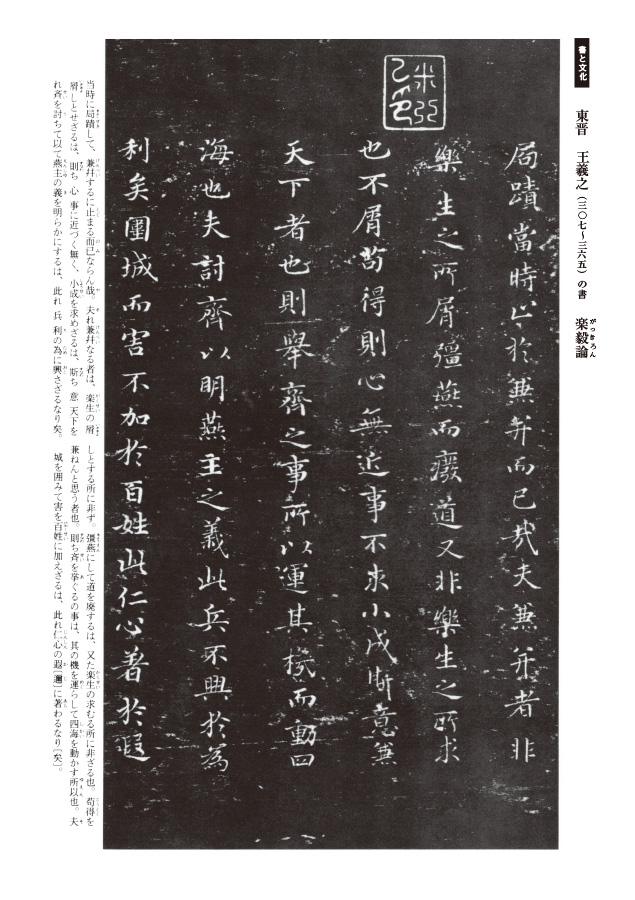 書と文化
東晋　王羲之（三〇七〜三六五）の書　楽毅論
がっきろん
局蹟當時止於兼并而已哉夫兼并者非
樂生之所屑彊燕而癈道又非樂生之所求
也不屑苟得則心無近事不求小成斯意兼
天下者也則舉齊之事所以運其機而動四
海也夫討齊以明燕主之義此兵不興於為
利矣圍城而害不加於百姓此仁心著於遐
当時に局蹟して、兼幷するに止まる而已ならん哉。夫れ兼幷なる者は、楽生の屑しとする所に非ず。彊燕にして道を廃するは、又た楽生の求むる所に非ざる也。苟得を
屑しとせざるは、則ち心 事に近づく無く、小成を求めざるは、斯ち意 天下を兼ねんと思う者也。則ち斉を挙ぐるの事は、其の機を運らして四海を動かす所以也。夫
れ斉を討ちて以て燕主の義を明らかにするは、此れ兵 利の為に興さざるなり矣。城を囲みて害を百姓に加えざるは、此れ仁心の遐〔邇〕に著わるるなり〔矣〕。